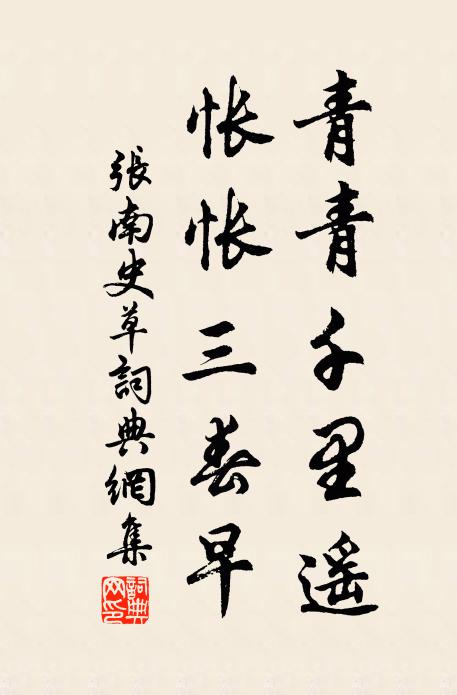 青青千里遥
怅怅三春早
張南史草詞典網集
詞典網印